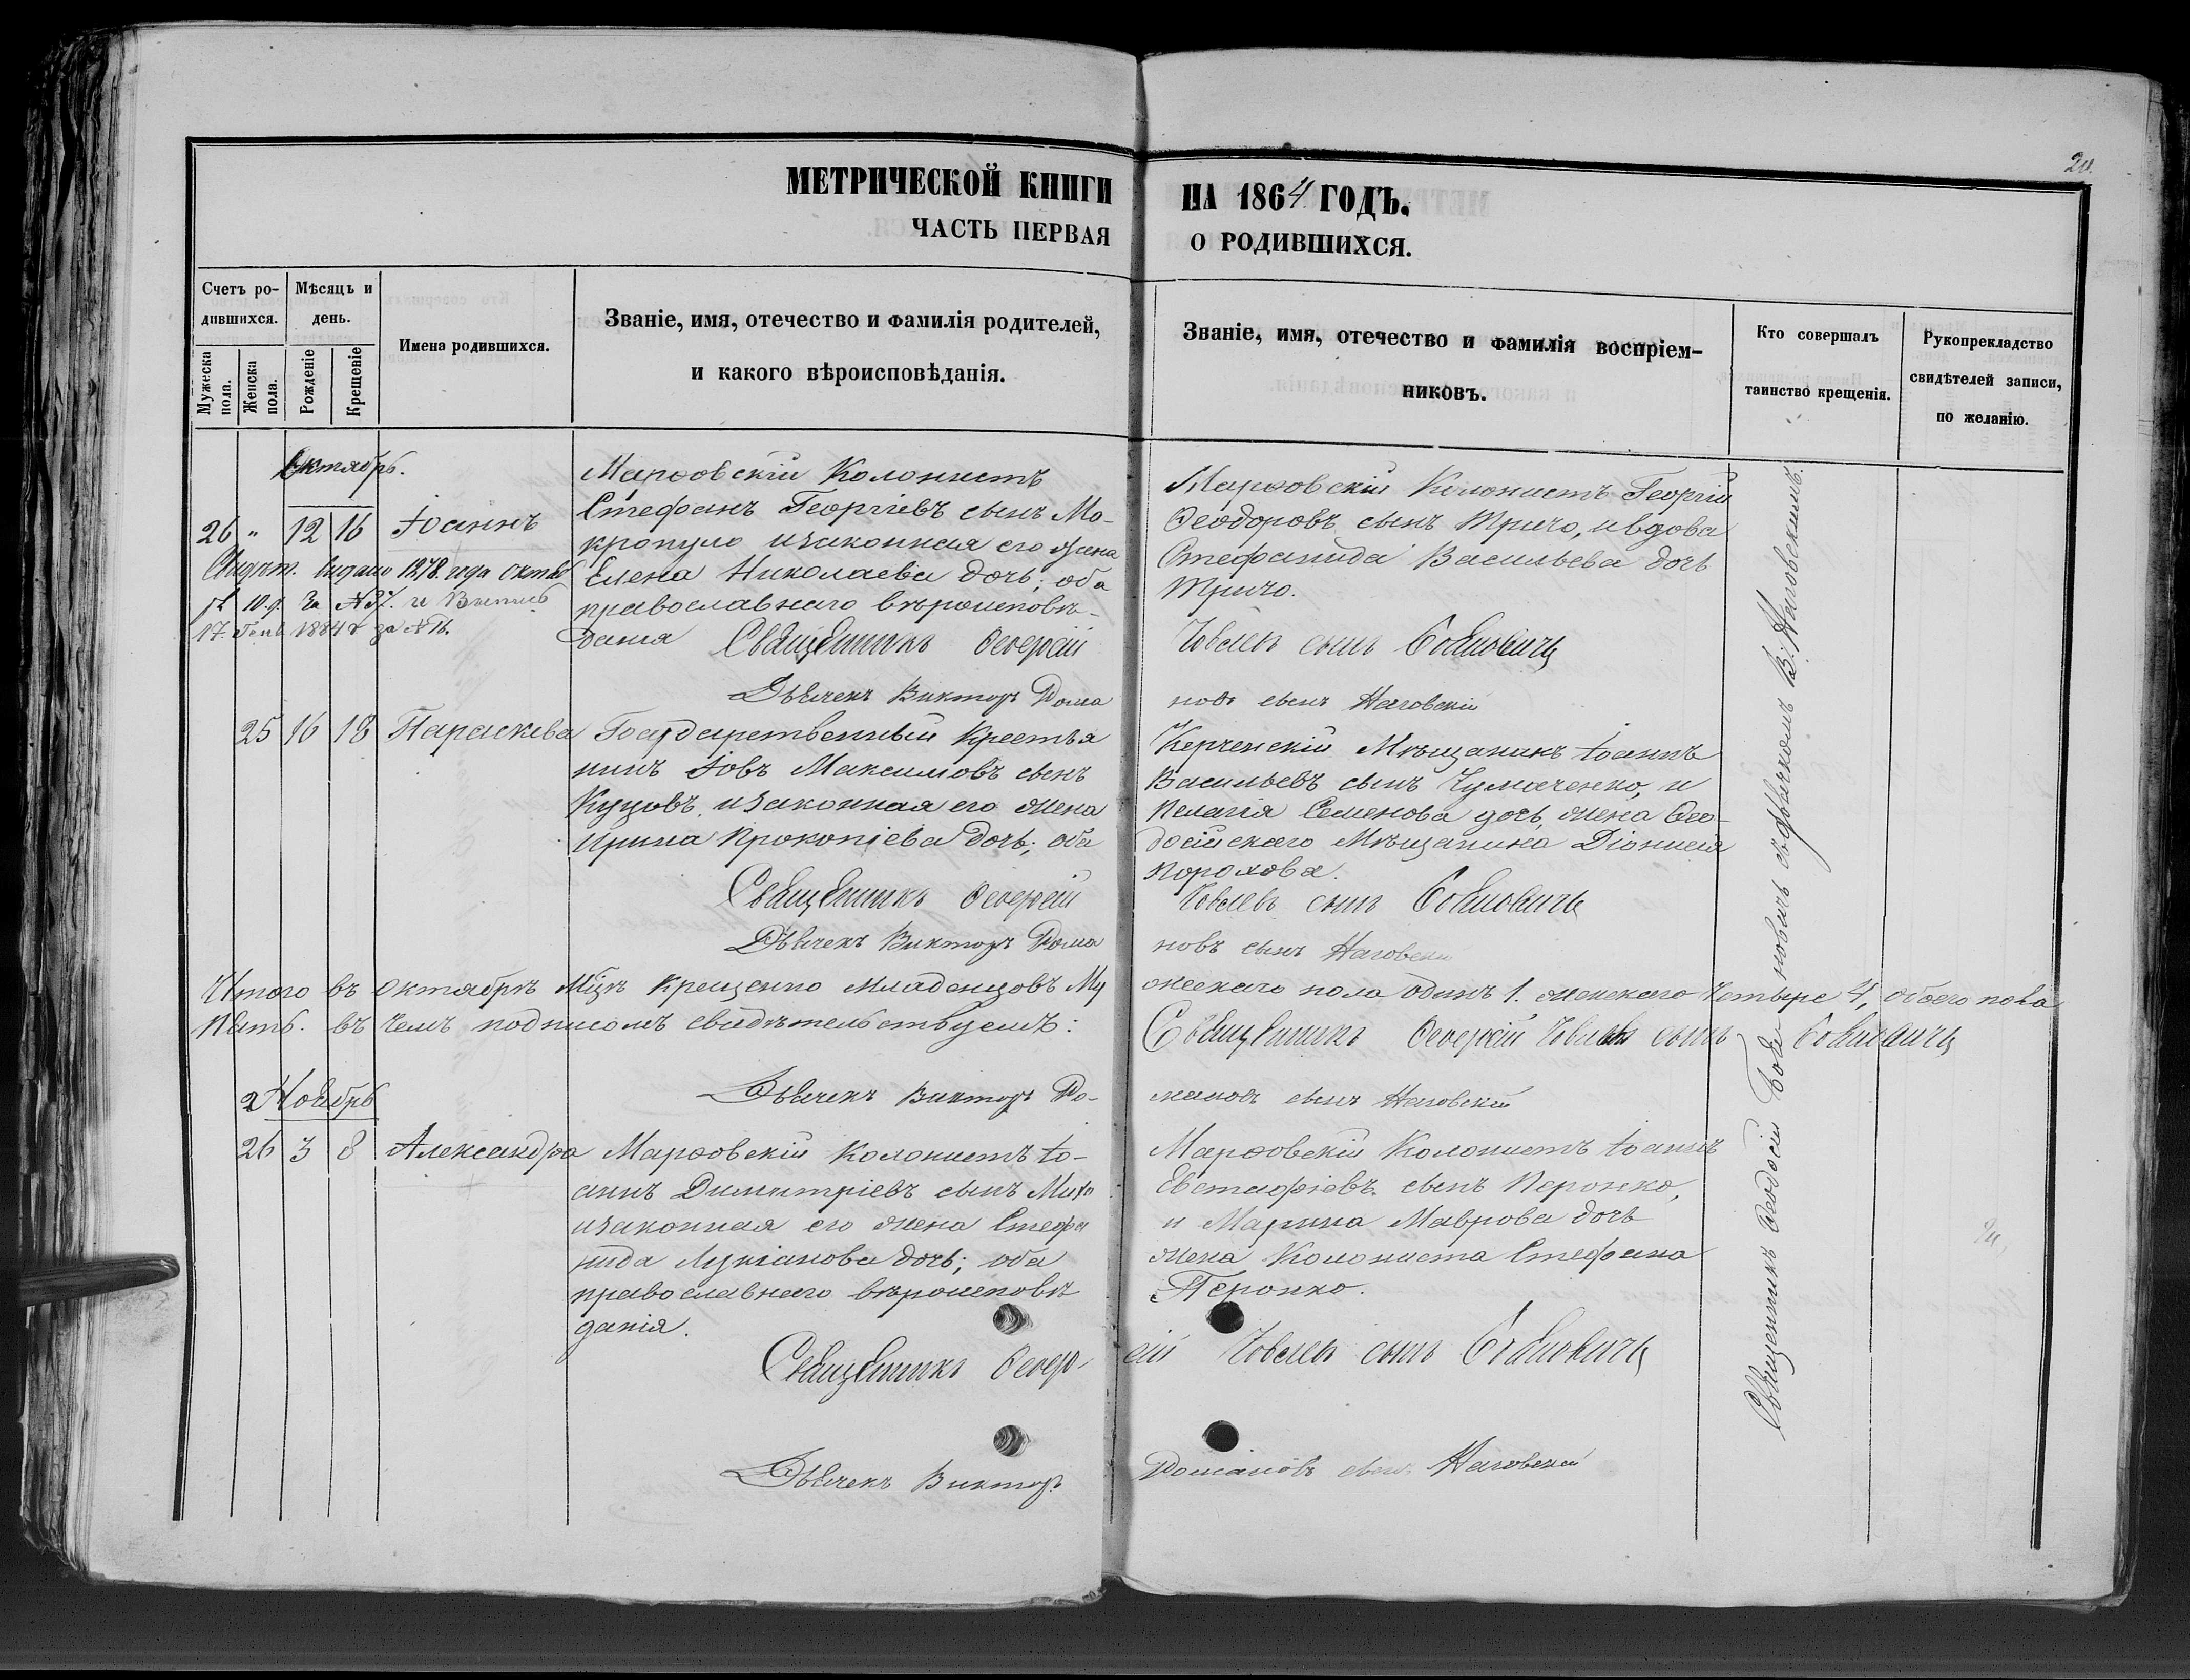 20.
МЕТРИЧЕСКОЙ КНИГИ НА 1864 ГОДЪ.
ЧАСТЬ ПЕРВАЯ О РОДИВШИХСЯ.
Счетъ ро-
дившихся.
Мужеска
пола.
Женска
пола.
Мѣсяцъ и
день.
Рожденіе
Крещеніе
Имена родившихся.
Званіе, имя, отечество и фамилія родителей,
и какого вѣроисповѣданія.
Званіе, имя, отечество и фамилія воспріем-
никовъ.
Кто совершалъ
таинство крещенія.
Рукоприкладство
свидѣтелей записи,
по желанію.
Октябрь.
26 " 12 16 Іоаннъ
выдано 1878. года Октяб
10. д. За №
17. Генв. 1884 г за № 16.
Марѳовскій Колонистъ
Стефанъ Георгіевъ сынъ Мо-
кропуло изаконная его жена
Елена Николаева дочь; оба
православнаго вѣроисповѣ-
данія
Марѳовскій Колонистъ Георгій
Ѳеодоровъ сынъ Тричо, ивдова
Стефанида Васильева дочь
Тричо.
Священникъ сынъ
Дьячекъ Викторъ Рома новъ сынъ Наговскій
25 16 18 Параскева
Государственный Крестья
нинъ Іовъ Максимовъ сынъ
Куцовъ, изаконная его жена
Ирина Прокопіева дочь; оба
Керченскій Мѣщанинъ Іоаннъ
Васильевъ сынъ Чумаченко, и
Пелагія Семенова дочь, жена Ѳео-
досійскаго Мѣщанина Діонисія
Порохова.
Священникъ сынъ
Дьячекъ Викторъ Рома новъ сынъ Наговскій
Итого въ Октябрѣ Мцѣ Крещено Младенцовъ Му жескаго пола одинъ 1. женскаго Четыре 4, обоего пола
Пять. въ чемъ подписомъ свидѣтельствуемъ: Священникъ сынъ
Дьячекъ Викторъ Ро- мановъ сынъ Наговскій
Ноябрь
26 3 8 Александра
Марѳовскій Колонистъ Іо-
аннъ Димитріевъ сынъ Михо
изаконная его жена Стефа
нида Лукіанова дочь; оба
православнаго вѣроисповѣ
данія.
Марѳовскій Колонистъ Іоаннъ
Евстафіевъ сынъ Перонко,
и Марина Маврова дочь
жена Колониста Стефана
Перонко.
Священникъ сынъ
Дьячекъ Викторъ Романовъ сынъ Наговскій
Священникъ Ѳеодосій съ дьячкомъ В. Наговскимъ.